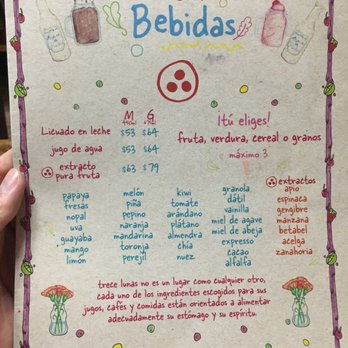 Bebidas
M G
Licuado en leche $53 $64
jugo de agua $53 $64
extracto pura fruta $63 $79
¡tú eliges!
fruta, verdura, cereal o granos
máximo 3
papaya
fresas
nopal
uva
guayaba
mango
limón
melón
piña
pepino
naranja
mandarina
toronja
perejil
kiwi
tomate
arándano
plátano
almendra
chía
nuez
granola
dátil
vainilla
miel de agave
miel de abeja
expresso
cacao
alfalfa
extractos
apio
espinaca
gengibre
manzana
betabel
acelga
zanahoria
trece lunas no es un lugar como cualquier otro,
cada uno de los ingredientes escogidos para sus
jugos, cafés y comidas están orientados a alimentar
adecuadamente su estómago y su espíritu.